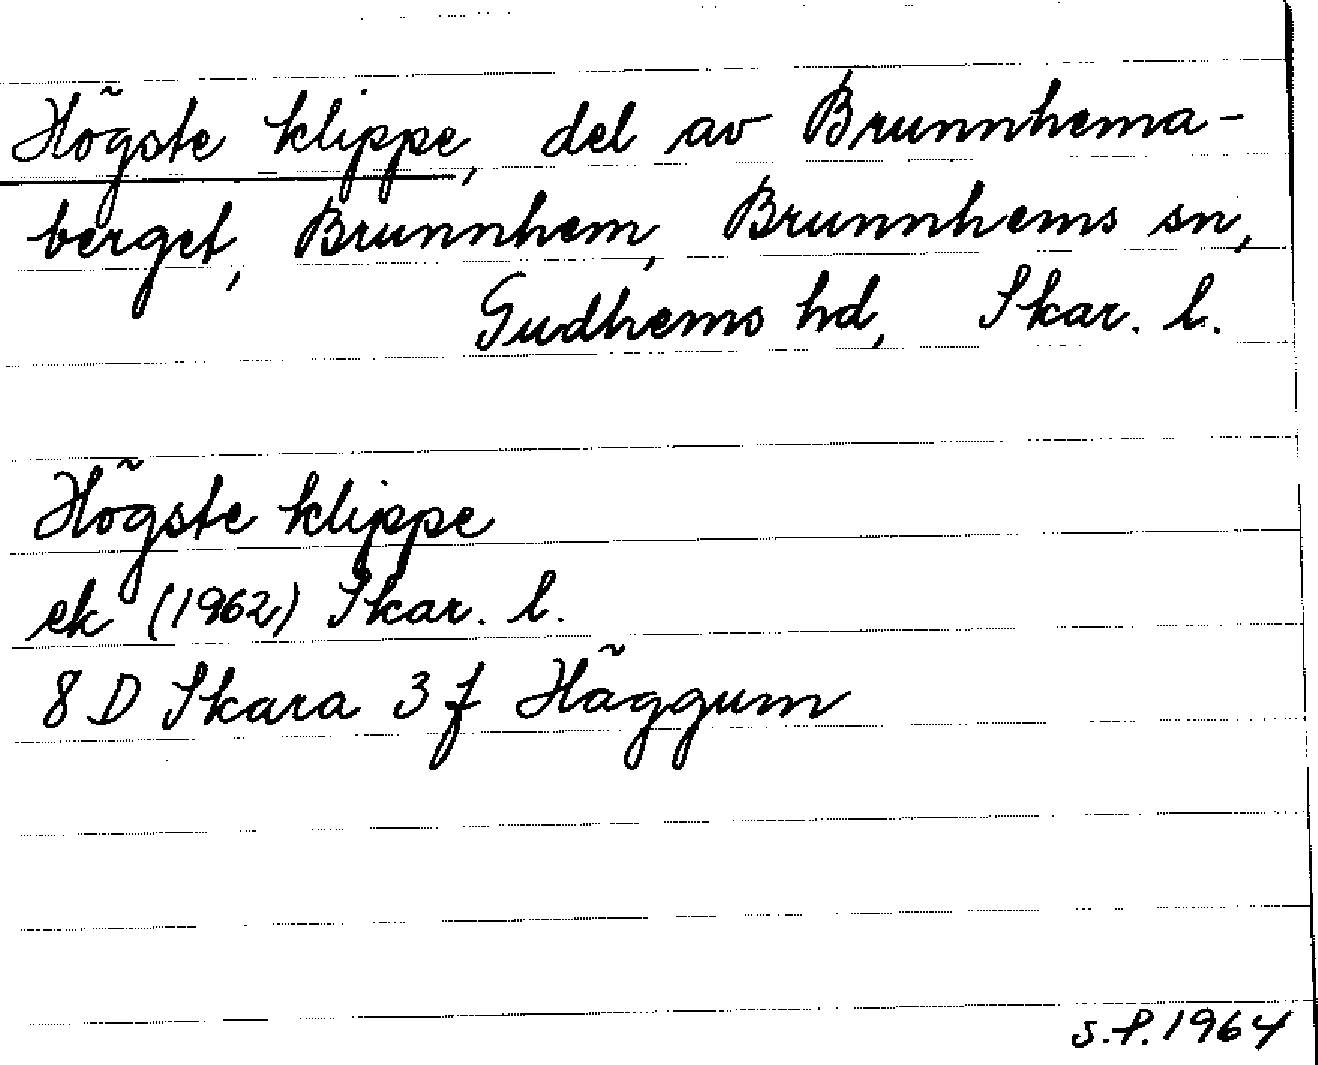 Högste klippe, del av Brunnhema-
berget, Brunnhem, Brunnhems sn,
Gudhems hd, Skar. l.
Högste klippe
ek (1962) Skar. l.
8 D Skara 3 f Häggum
S.P. 1964